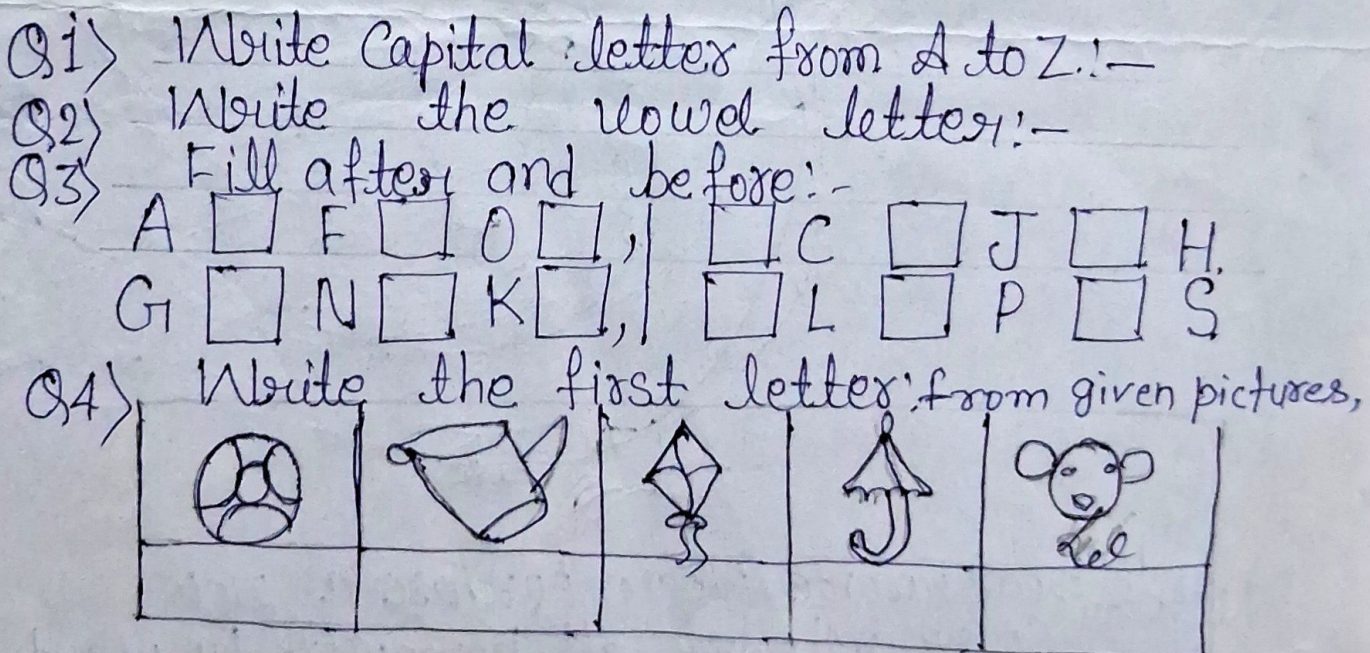 Q1) Write Capital letter from A to Z.:-
Q2) Write the vowel letter:-
Q3) Fill after and before:-
A □ F □ O □, | □ C □ J □ H.
G □ N □ K □, | □ L □ P □ S
Q4) Write the first letter from given pictures,